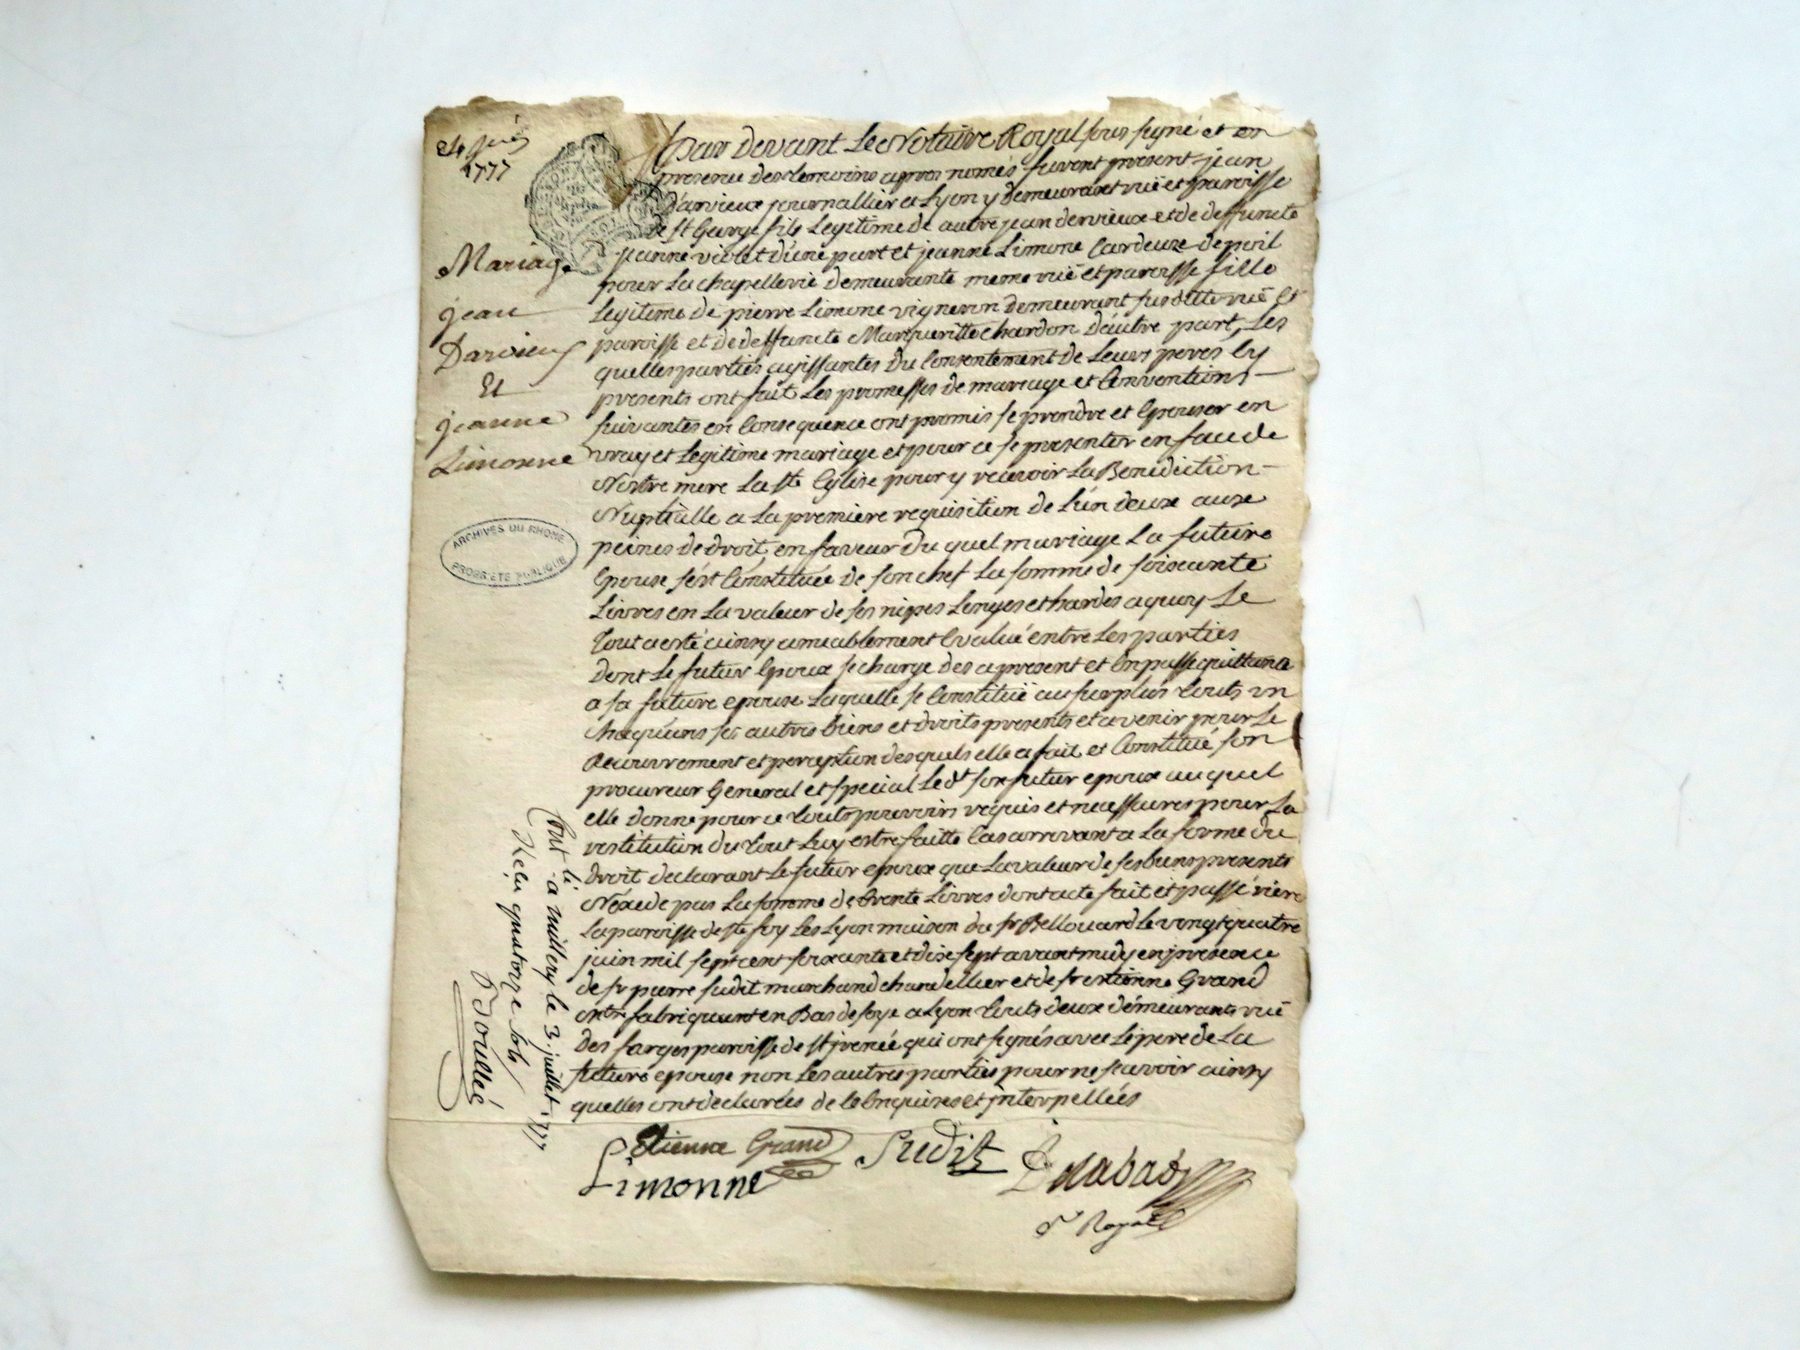 24 juin
1777
Mariage
jean
Darvieux
Et
jeanne
Limonne
ARCHIVES DU RHONE
PROPRIETE PUBLIQUE
par Devant Le Notaire Royal sous signé et en
presence des temoins apres només furent present jean
Darvieux journallier a Lyon y demeurant ruë et paroisse
de St George fils Legitime de autre jean dervieux et de deffuncte
jeanne violet d'une part et jeanne Limone Cardeuze de poil
pour La chapellerie demeurante meme ruë et paroisse fille
Legitime de pierre Limone vigneron demeurant susditte ruë et
paroisse et de deffuncte Margueritte chardon d'autre part, Les
quelles parties agissantes du Consentement de Leurs peres Cy
presents ont fait Les promesses de mariage et Conventions
suivantes en Consequence ont promis se prendre et Epouser en
vray et Legitime mariage et pour ce se presenter en face de
Nostre mere La Ste Eglise pour y recevoir La Benediction
Nuptialle a La premiere requisition de L'un deux aux
peines de droit, en faveur du quel mariage La future
Epouse s'est Constituée de son chef La somme de soixante
Livres en La valeur de ses nipes Linges et hardes a quoy Le
tout a esté ainsy amiablement Evalué entre Les parties
Dont Le futur Epoux se charge des a present et En passe quittance
a sa future epouse Laquelle se Constituë au surplus touts un
chaquuns ses autres biens et droits presents et avenir pour Le
Recouvrement et perception desquels elle a fait et Constitué son
procureur General et special Le dt son futur epoux auquel
elle donne pour ce touts pouvoirs requis et necessaires pour La
restitution du tout Luy estre faitte Cas arrivant a La forme du
droit declarant Le futur epoux que La valeur de ses biens presents
N'exede pas La somme de trente Livres dont acte fait et passé riere
La paroisse de Ste foy Les Lyon maison du Sr Bellouard Le vingt quatre
juin mil sept cent soixante et dix sept avant midy en presence
de Sr pierre sudit marchand chandellier et de Sr estienne Grand
mtre fabriquant en Bas de soye a Lyon touts deux demeurants ruë
des farges paroisse de St jrenée qui ont signés avec Le pere de La
future epouse non Les autres parties pour ne scavoir ainsy
quelles ont declarées de ce Enquises et jnterpellées
Etienne Grand Sudit
Limonne
Nre Royal
Cont. a millery le 3. juillet 1777
Reçu quatorze sols